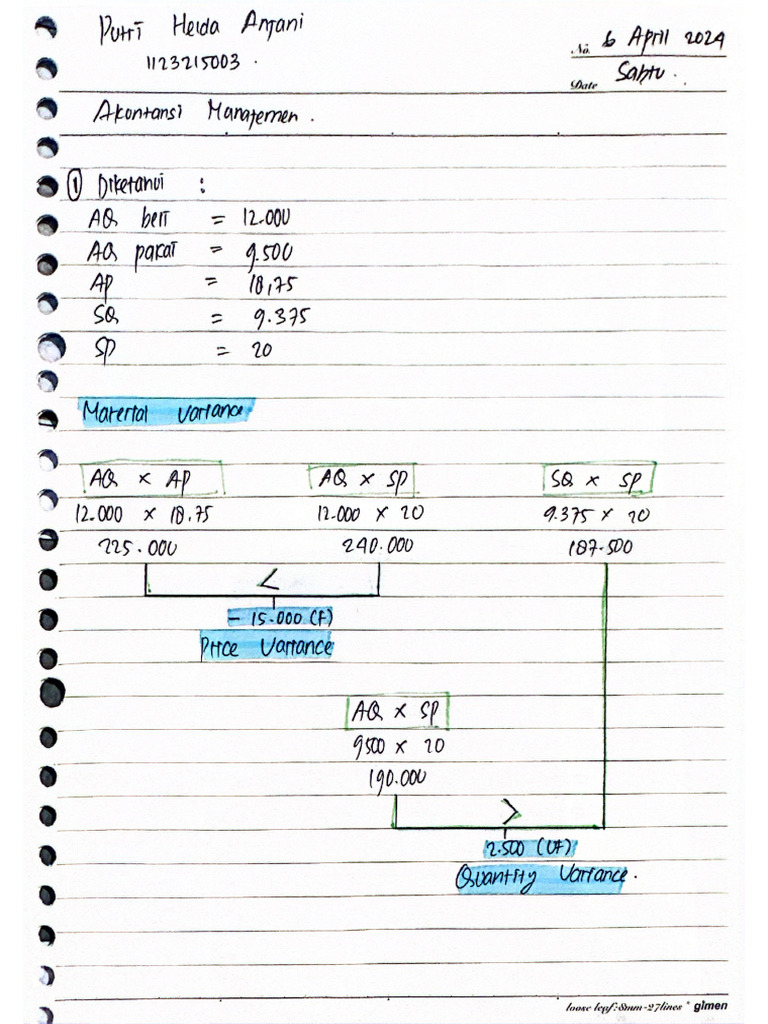 Putri Heida Anjani
No. 6 April 2024
1123215003.
Date Sabtu.
Akuntansi Manajemen.
① Diketahui :
AQ beli = 12.000
AQ pakai = 9.500
AP = 18,75
SQ = 9.375
SP = 20
Material Variance
AQ × AP AQ × SP SQ × SP
12.000 × 18.75 12.000 × 20 9.375 × 20
225.000 240.000 187.500
<
- 15.000 (F)
Price Variance
AQ × SP
9500 × 20
190.000
>
2.500 (UF)
Quantity Variance.
loose leaf:8mm-27lines * glmen